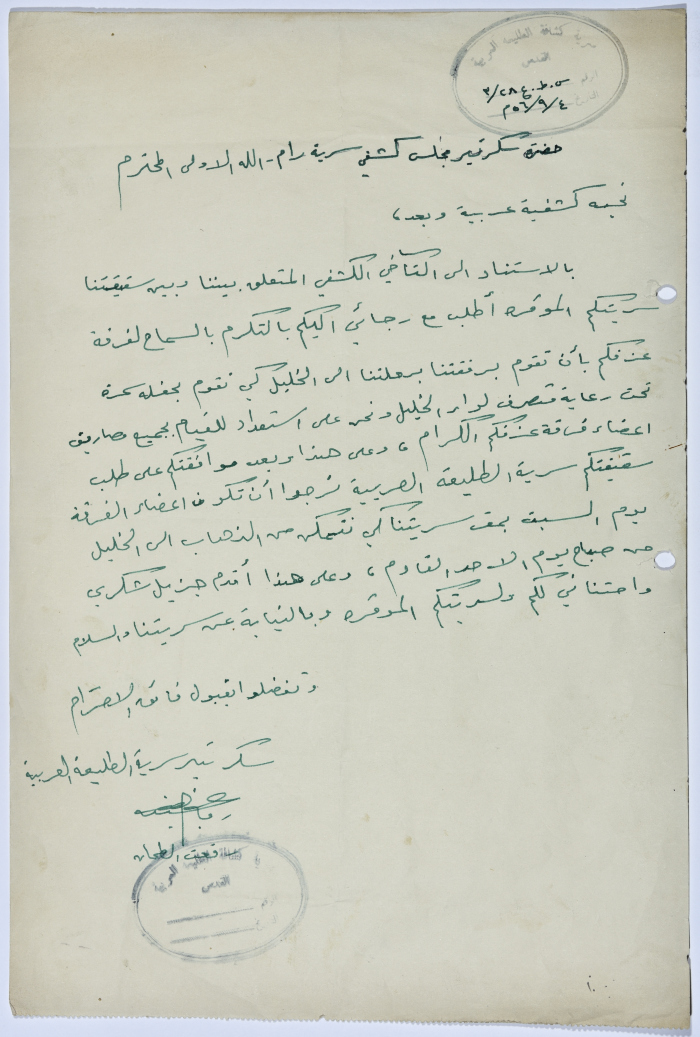 سرية كشافة الطليعة العربية
القدس
الرقم س.ط.ع ٣/٢٨
التاريخ ٥٦/٩/٤م
حضرة سكرتير مجلس كشفي سرية رام-الله الاولى المحترم
تحيه كشفية عربية وبعد،
بالاستناد الى التآخي الكشفي المتعلق بيننا وبين شقيقتنا
سريتكم الموقره أطلب مع رجائي اليكم بالتكرم بالسماح لفرقة
عزفكم بأن تقوم برفقتنا برحلتنا الى الخليل كي نقوم بحفله سمرة
تحت رعاية متصرف لواء الخليل ونحن على استعداد للقيام بجميع مصاريف
اعضاء فرقة عزفكم الكرام، وعلى هذا وبعد موافقتكم على طلب
شقيقتكم سرية الطليعة العربية نرجوا أن تكون اعضاء الفرقة
يوم السبت بمقر سريتنا كي نتمكن من الذهاب الى الخليل
من صباح يوم الاحد القادم، وعلى هذا أقدم جزيل شكري
وامتناني لكم ولسريتكم الموقره وبالنيابة عن سريتنا والسلام
وتفضلوا بقبول فائق الاحترام
سكرتير سرية الطليعة العربية
الطحان
كشافة الطليعة العربية
القدس
الرقم
التاريخ
١٠٠